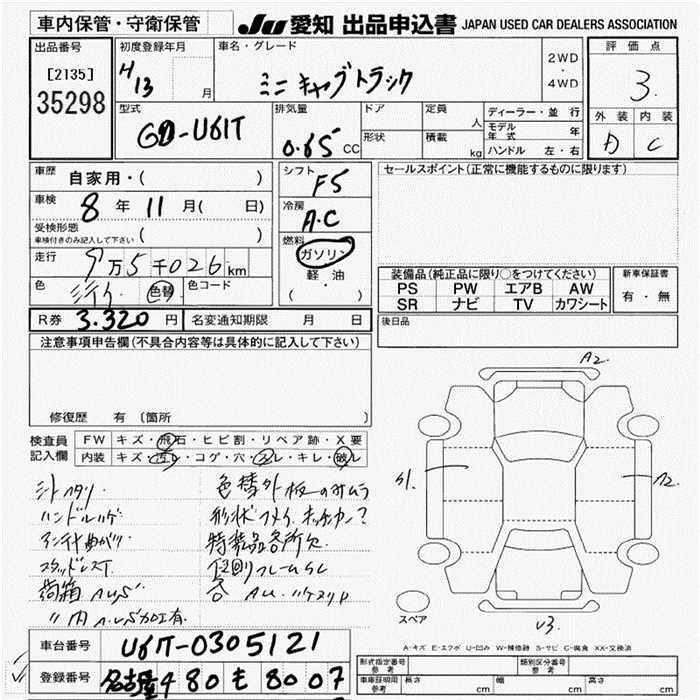 車内保管・守衛保管
JU 愛知 出品申込書 JAPAN USED CAR DEALERS ASSOCIATION
出品番号
[2135]
35298
初度登録年月
H13 月
車名・グレード
ミニキャブトラック
2WD
・
4WD
評価点
3.
外装 内装
D C
型式
GD-U61T
排気量
0.65 CC
ドア
形状
定員 人
積載 kg
ディーラー・並行
モデル年式 年
ハンドル 左・右
車歴 自家用・( )
車検 8 年 11 月( 日)
受検形態
車検付きのみ記入して下さい ( )
走行 9万5千026km
色 色替 色コード
シフト F5
冷房 A.C
燃料 ガソリン
軽・油
( ・ )
セールスポイント(正常に機能するものに限ります)
装備品(純正品に限り○をつけてください)
PS PW エアB AW
SR ナビ TV カワシート
新車保証書
有・無
後日品
R券 3.320 円 名変通知期限 月 日
注意事項申告欄(不具合内容等は具体的に記入して下さい)
修復歴 有 〔箇所 〕
検査員記入欄
FW キズ・飛石・ヒビ割・リペア跡・X要
内装 キズ・汚レ・コゲ・穴・スレ・キレ・破レ
A2.
S1.
A2.
U3.
スペア
A-キズ E-エクボ U-凹み W-補修跡 S-サビ C-腐食 XX-交換済
ハンドルハゲ
アンテナ曲がり
スタッドレスT
荷箱 A.U.S
〃内 A.U.S加工有.
色替外板のみムラ
特装品各所欠
下回りフレームSC
車台番号 U61T-0305121
登録番号 名古屋4 80 も 80 07
形式指定番号 参考
類別区分番号 参考
車庫証明用 参考
長さ cm 幅 cm 高さ cm